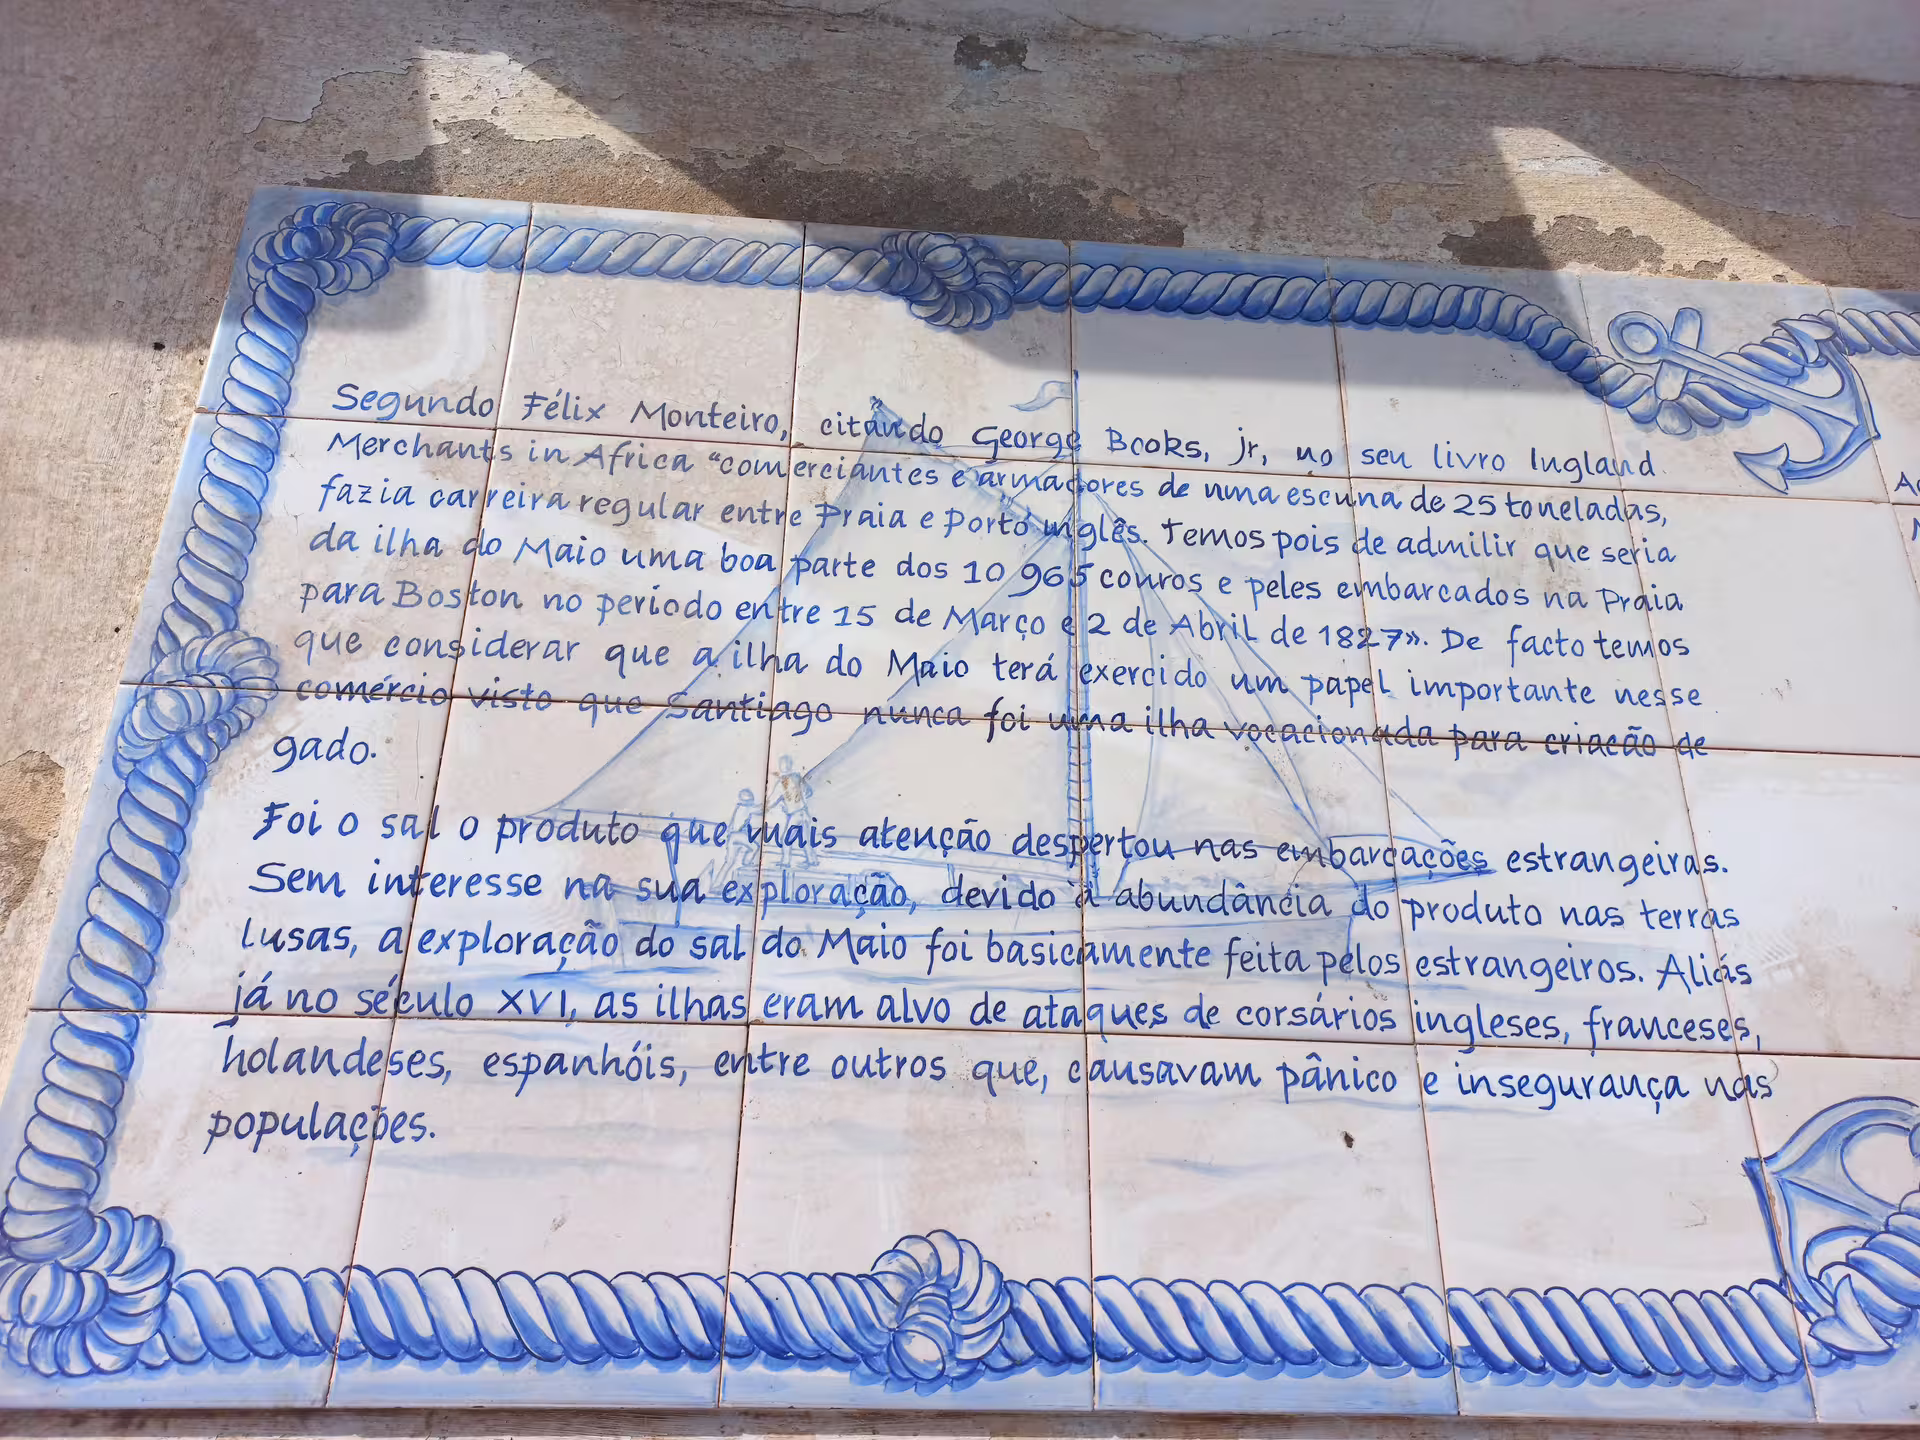 Segundo Félix Monteiro, citando George Books, jr, no seu livro Ingland
Merchants in Africa "comerciantes e armadores de uma escuna de 25 toneladas,
fazia carreira regular entre Praia e Porto inglês. Temos pois de admilir que seria
da ilha do Maio uma boa parte dos 10 965 couros e peles embarcados na Praia
para Boston no periodo entre 15 de Março e 2 de Abril de 1827». De facto temos
que considerar que a ilha do Maio terá exercido um papel importante nesse
comércio visto que Santiago nunca foi uma ilha vocacionada para criacão de
gado.
Foi o sal o produto que mais atenção despertou nas embarcações estrangeiras.
Sem interesse na sua exploração, devido à abundância do produto nas terras
lusas, a exploração do sal do Maio foi basicamente feita pelos estrangeiros. Aliás
já no século XVI, as ilhas eram alvo de ataques de corsários ingleses, franceses,
holandeses, espanhóis, entre outros que, causavam pânico e insegurança nas
populações.